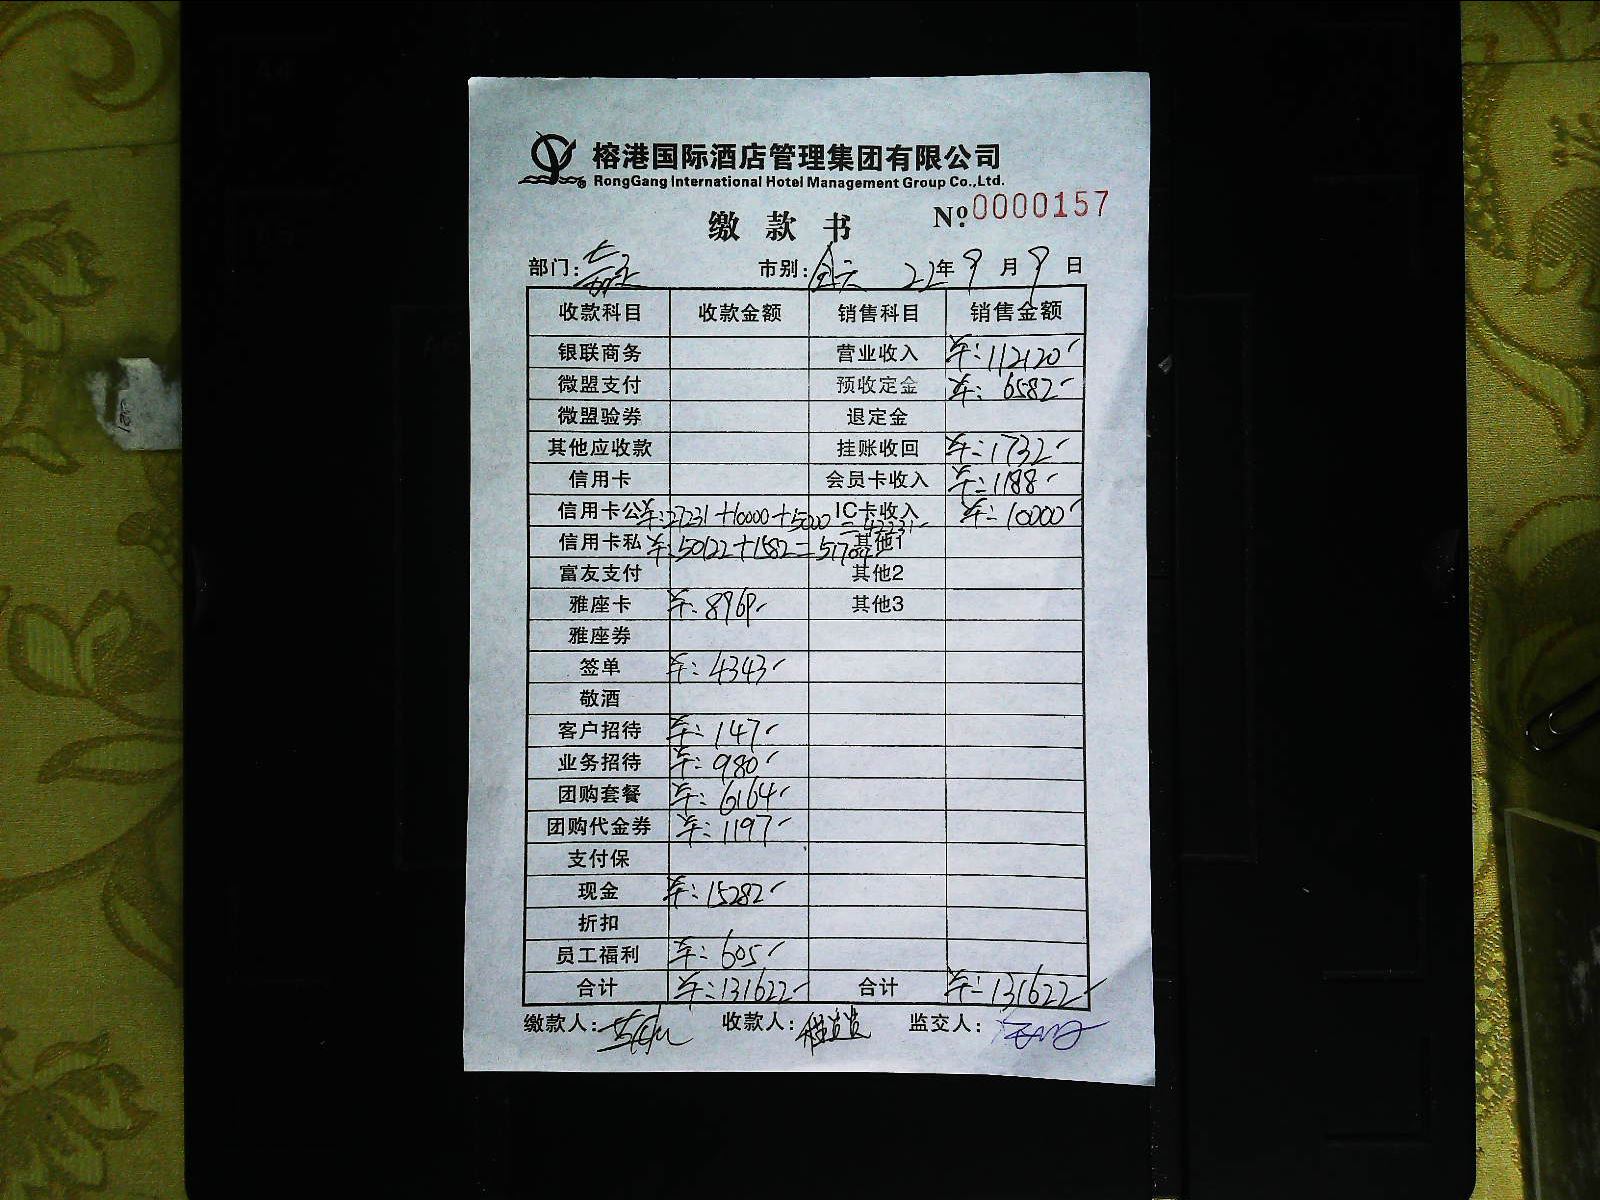 榕港国际酒店管理集团有限公司
RongGang International Hotel Management Group Co.,Ltd.
缴款书 № 0000157
部门: 市别: 22年9月9日
收款科目 收款金额 销售科目 销售金额
银联商务 营业收入 ¥:112120-
微盟支付 预收定金 ¥:6582-
微盟验券 退定金
其他应收款 挂账收回 ¥:1732-
信用卡 会员卡收入 ¥:1188-
信用卡公 ¥:27231+10000+5000=42231- IC卡收入 ¥:10000-
信用卡私 ¥:50122+1582=51704- 其他1
富友支付 其他2
雅座卡 ¥:8969- 其他3
雅座券
签单 ¥:4343-
敬酒
客户招待 ¥:147-
业务招待 ¥:980-
团购套餐 ¥:6164-
团购代金券 ¥:1197-
支付保
现金 ¥:15282-
折扣
员工福利 ¥:605-
合计 ¥:131622- 合计 ¥:131622-
缴款人: 收款人: 监交人: